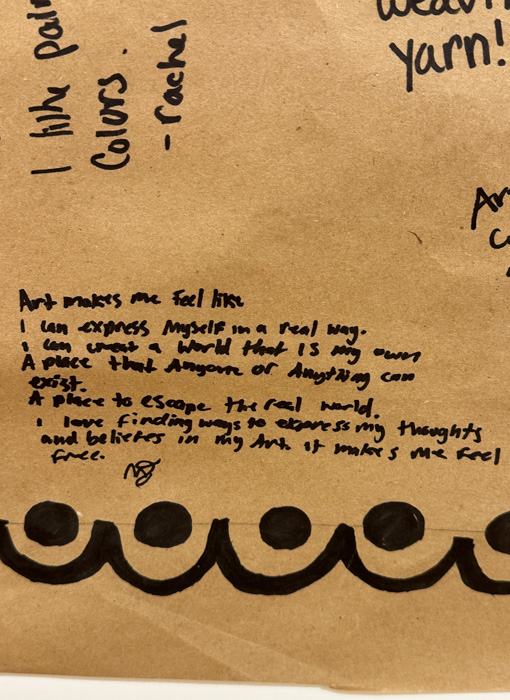 I like
Colors.
-rachel
yarn!
Art makes me feel like
I can express myself in a real way.
i can creat a world that is my own
A place that Anyone or Anything can
exist.
A place to escape the real world.
i love finding ways to express my thoughts
and beliefes in my Art. it makes me feel
free.